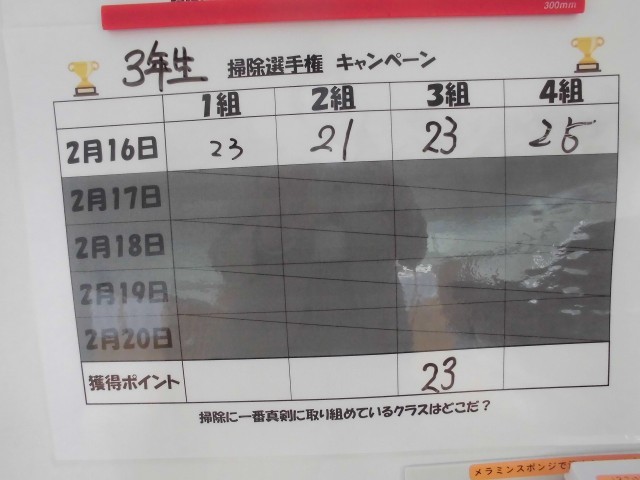 300mm
3年生 掃除選手権 キャンペーン
1組 2組 3組 4組
2月16日 23 21 23 25
2月17日
2月18日
2月19日
2月20日
獲得ポイント 23
掃除に一番真剣に取り組めているクラスはどこだ？
メラミンスポンジで